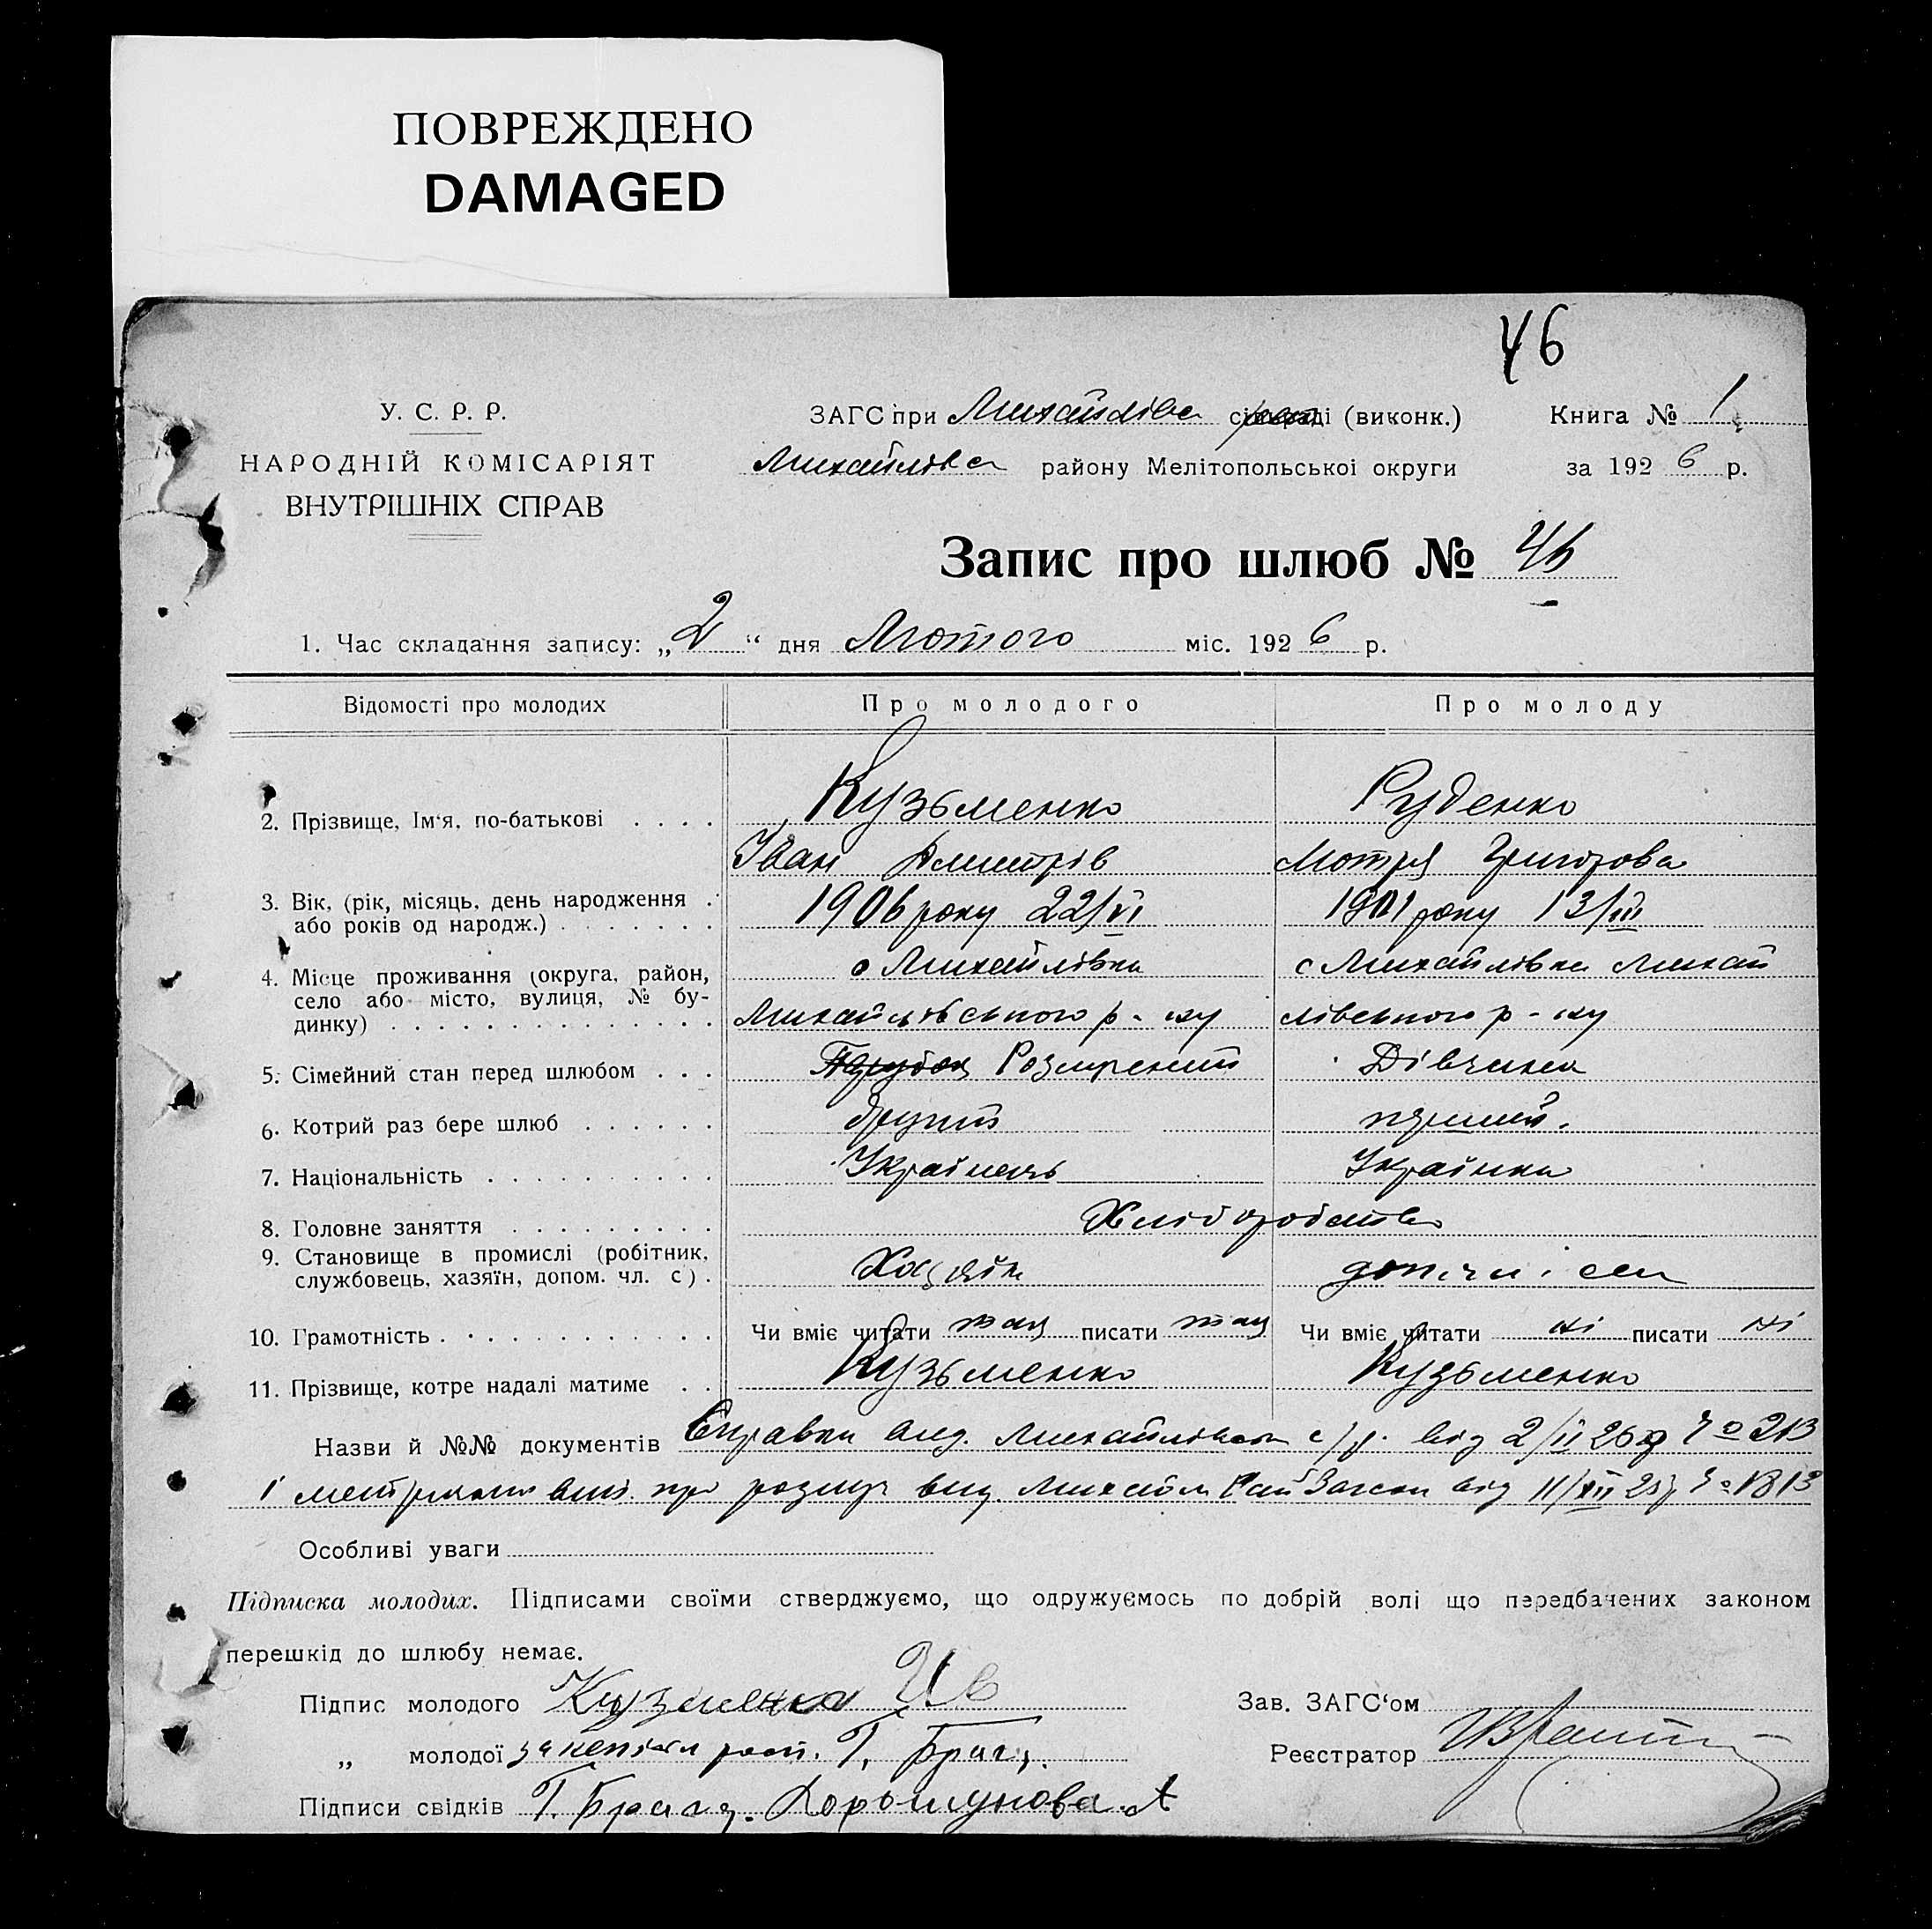 ПОВРЕЖДЕНО
DAMAGED
46
У. С. Р. Р.
НАРОДНІЙ КОМІСАРІЯТ
ВНУТРІШНІХ СПРАВ
ЗАГС при Михайлівс (виконк.) Книга № 1
Михайлівс району Мелітопольської округи за 1926 р.
Запис про шлюб № 46
1. Час складання запису: „2“ дня Лютого міс. 1926 р.
Відомості про молодих Про молодого Про молоду
2. Прізвище, Ім'я, по-батькові . . . . Кузьменко Руденко
Іван Дмитрів Мотря Григорова
3. Вік, (рік, місяць, день народження . 1906 року 22/VI 1901 року 13/III
або років од народж.) . . . . . . .
4. Місце проживання (округа, район, с Михайлівка с Михайлівка Михай
село або місто, вулиця, № бу- Михайлівського р-ну лівського р-ну
динку) . . . . . . . . . . . . . .
5. Сімейний стан перед шлюбом . . . Парубок Розмрений Дівчина
6. Котрий раз бере шлюб . . . . . . другий перший.
7. Національність . . . . . . . . . . Українець Українка
8. Головне заняття . . . . . . . . . Хліборобство
9. Становище в промислі (робітник, Хазяїн доп. чл. сем
службовець, хазяїн, допом. чл. с) .
10. Грамотність . . . . . . . . . . . . Чи вміє читати так писати так Чи вміє читати ні писати ні
11. Прізвище, котре надалі матиме . . Кузьменко Кузьменко
Назви й №№ документів Справки вид. Михайлівською с/р. від 2/II 26 р 213
і про розлуч вид. Михайл Рай Загсом від 11/XII 25 р 1813
Особливі уваги
Підписка молодих. Підписами своїми стверджуємо, що одружуємось по добрій волі що передбачених законом
перешкід до шлюбу немає.
Підпис молодого Кузменко Ив Зав. ЗАГС'ом
„ молодої за непісьм росп. Г. Браг. Реєстратор
Підписи свідків Г. Браг. Коршунова А